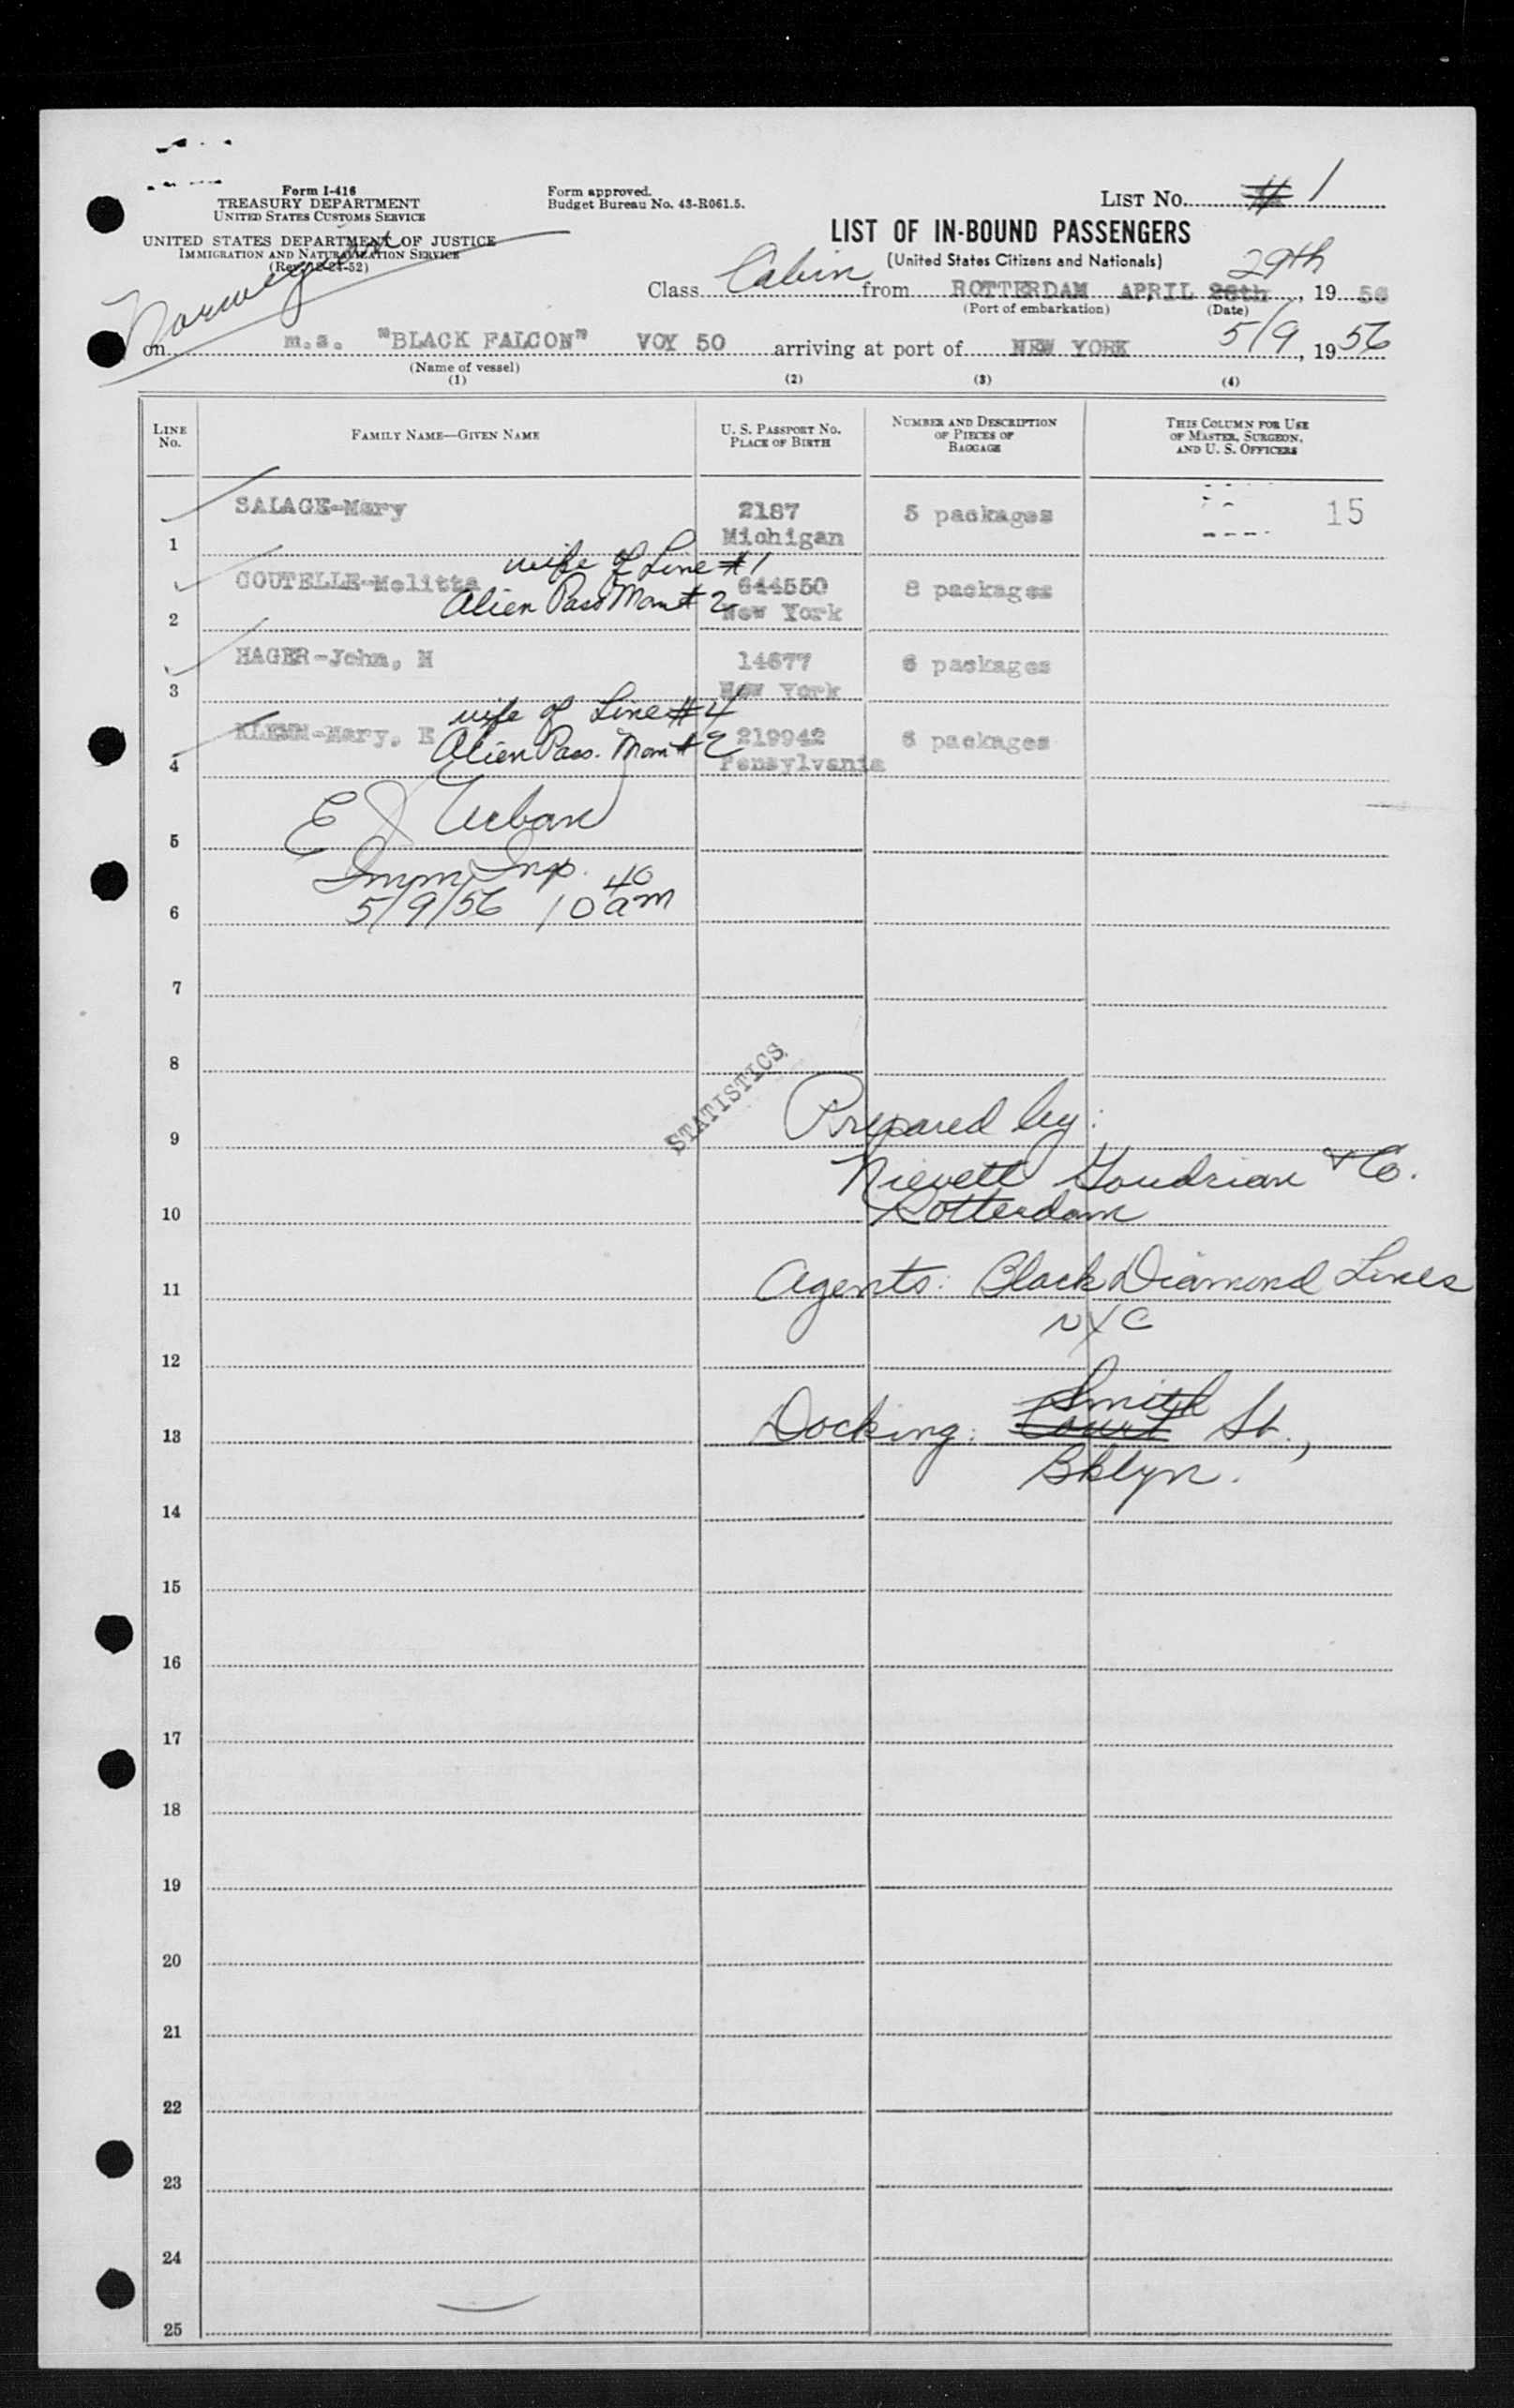 Form I-416
TREASURY DEPARTMENT
UNITED STATES CUSTOMS SERVICE
UNITED STATES DEPARTMENT OF JUSTICE
IMMIGRATION AND NATURALIZATION SERVICE
(Rev. 12-24-52)
Norwegian
Form approved.
Budget Bureau No. 43-R061.5.
LIST NO. 1
LIST OF IN-BOUND PASSENGERS
(United States Citizens and Nationals)
Class Cabin from ROTTERDAM APRIL 26th 29th, 1956
(Port of embarkation) (Date)
on m.s. "BLACK FALCON" VOY 50 arriving at port of NEW YORK 5/9, 1956
(Name of vessel)
(1) (2) (3) (4)
LINE No. FAMILY NAME—GIVEN NAME U. S. PASSPORT NO. PLACE OF BIRTH NUMBER AND DESCRIPTION OF PIECES OF BAGGAGE THIS COLUMN FOR USE OF MASTER, SURGEON, AND U. S. OFFICERS
1 SALAGE-Mary 2187 Michigan 5 packages 15
wife of Line #1
2 COUTELLE-Melitta Alien Pass Man #2 644550 New York 8 packages
3 HAGER-John, H 14677 New York 6 packages
wife of Line #4
4 KLEMM-Mary, E Alien Pass. Man #2 219942 Pensylvania 6 packages
5 E J Urban
Imm Insp.
6 5/9/56 10 40 am
7
8
STATISTICS
9 Prepared by:
Nievelt Goudrian & Co.
10 Rotterdam
11 Agents: Black Diamond Lines
NYC
12
Smith
13 Docking: Court St.,
Bklyn.
14
15
16
17
18
19
20
21
22
23
24
25